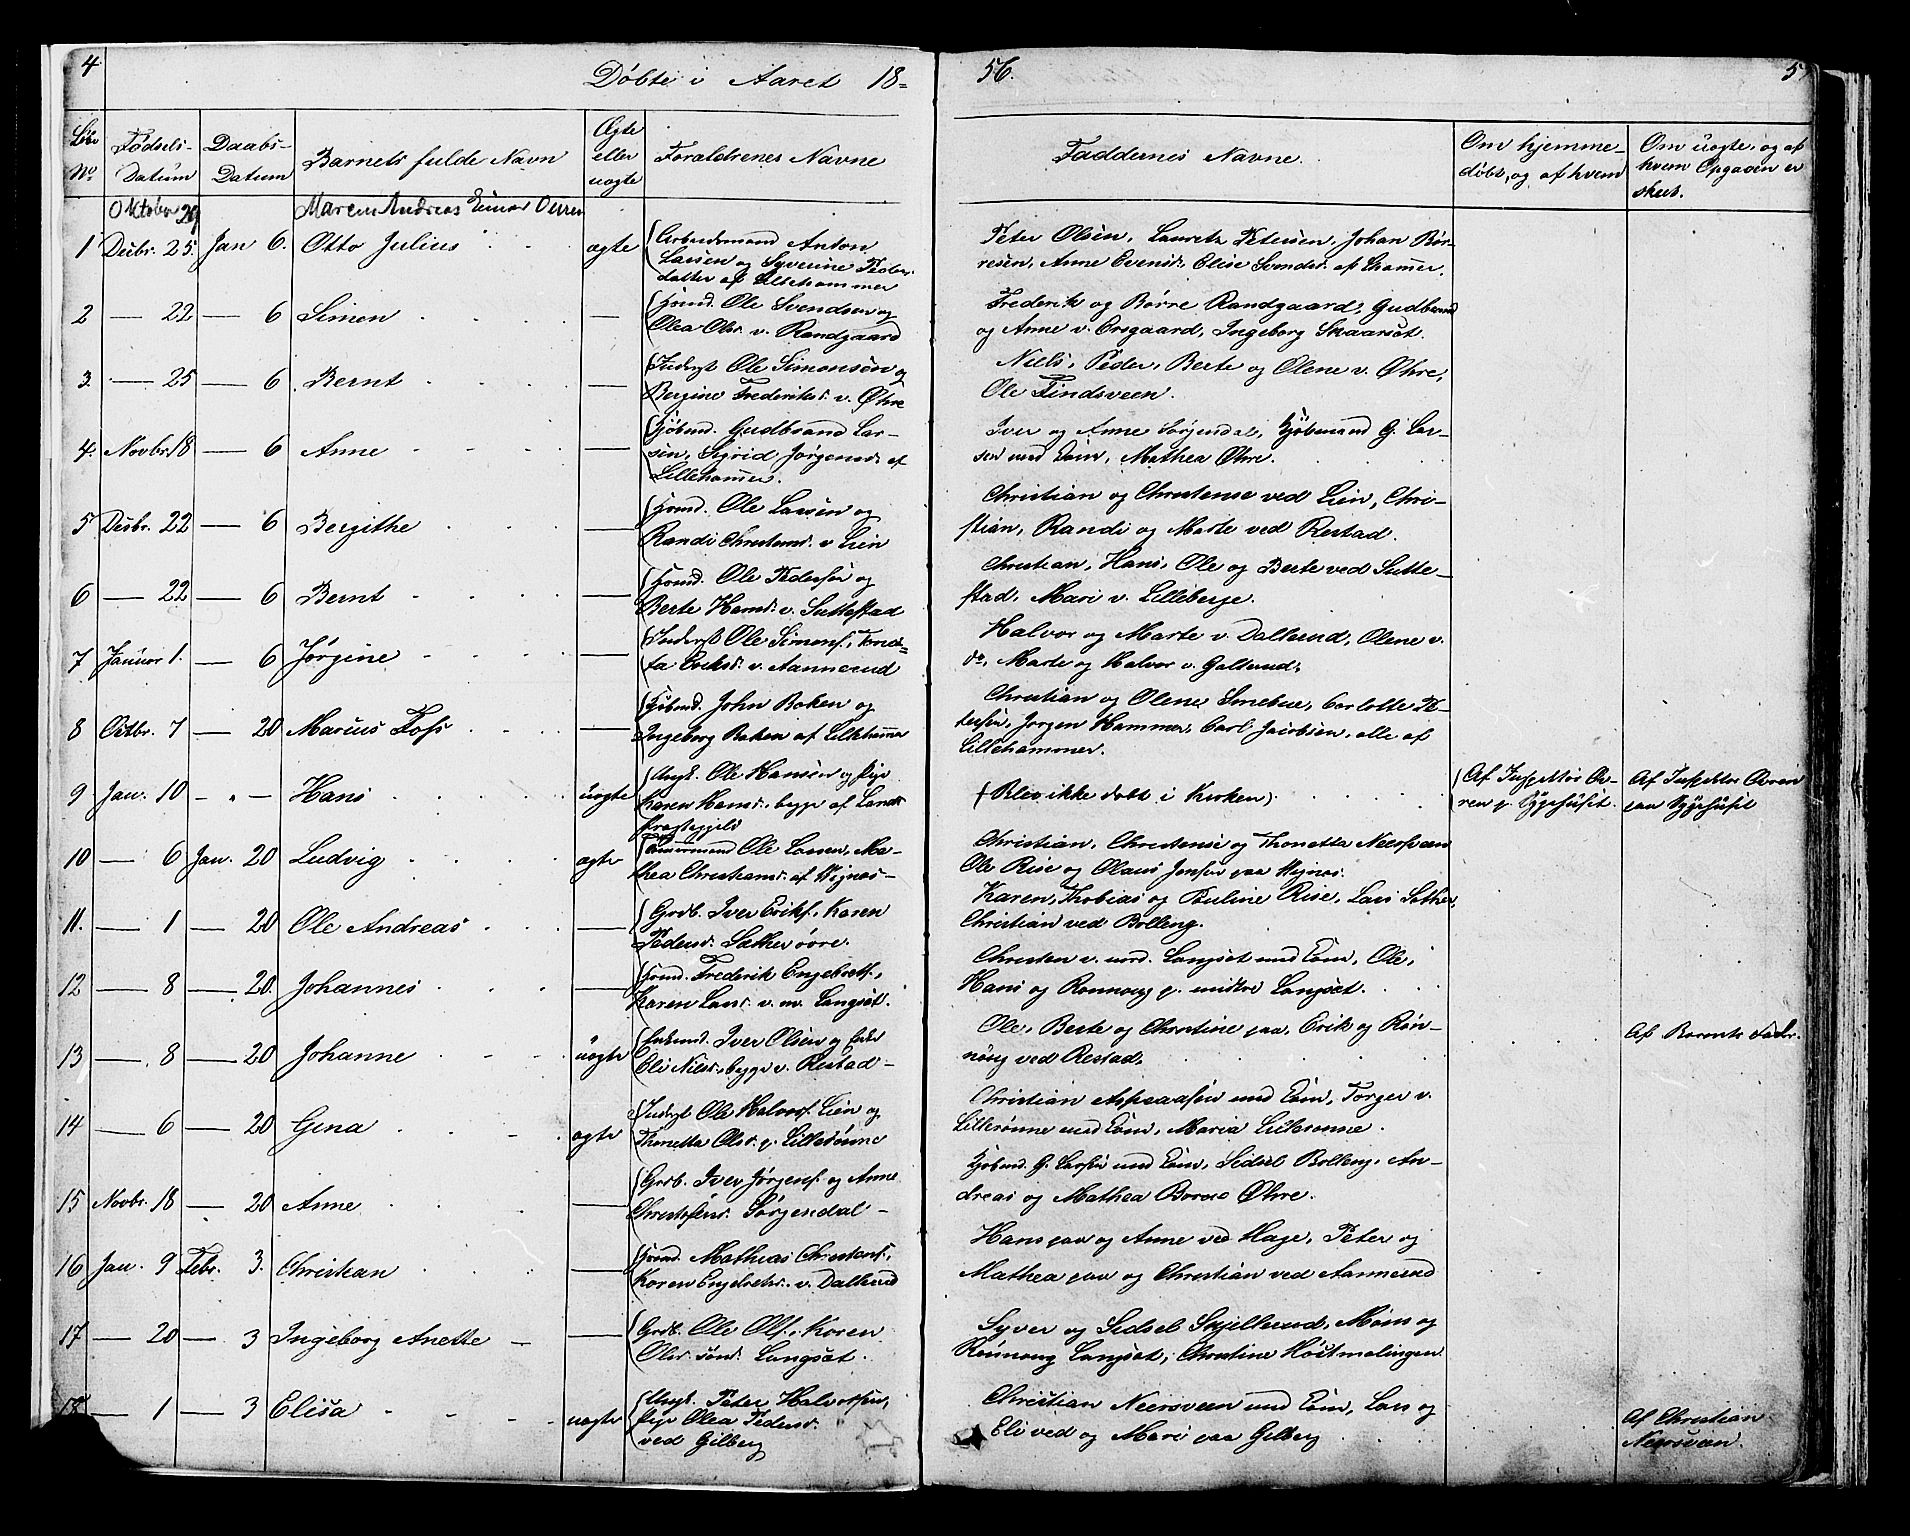 4
Døbte i Aaret 18=
56.
5
Løbe
No
Fødsels-
Datum
Daabs-
Datum
Barnets fulde Navn
Ægte
eller
uægte
Forældrenes Navne
Faddernes Navne.
Om hjemme-
døbt, og af hvem
Om uægte, og af
hvem Opgaven er
skeet.
Oktober 29 Andreas
1 Desbr. 25. Jan 6. Otto Julius ægte Arbeidsmand Anton
Larsen og Syverine Peders
datter af Lillehammer
Peter Olsen, Lauretz Petersen, Johan Bør-
resen, Anne Evensd., Elise Svendsd. af Lhamer.
2 — 22 — 6 Simen — Huusmd. Ole Svendsen og
Olea Olsd. v. Randgaard
Frederik og Børre Randgaard, Gudbrand
og Anne v. Ørsgaard, Ingeborg Skaarset.
3. — 25 — 6 Bernt — Inderst Ole Simonsøn og
Bergine Frederiksd. v. Øhre
Niels, Peder, Berte og Olene v. Øhre,
Ole Findsveen.
4. Novbr. 18 — 6 Anne — Kjøbmd. Gudbrand Lar-
sen, Sigrid Jørgensd. af
Lillehamer.
Iver og Anne Sørgendal, Kjøbmand G. Lar-
sen med Kone, Mathea Øhre.
5 Desbr. 22 — 6 Bergithe — Huusmd. Ole Larsen og
Randi Christensd. v Lien
Christian og Christense ved Lien, Chri-
stian, Randi og Marte ved Restad.
6 — 22 — 6 Bernt — Huusmd. Ole Pedersøn og
Berte Hansd. v. Suttestad
Christian, Hans, Ole og Berte ved Sutte-
stad, Mari v. Lilleberge.
7 Januar 1. — 6 Jørgine — Inderst Ole Simons.,
Eriksd. v. Aannerud
Halvor og Marte v. Dallerud, Olene v.
do, Marte og Halvor v. Gallerud,
8 Octbr. 7 — 20 Marius Foss — Kjøbmd. John Baken og
Ingeborg Baken af Lillehamer
Christian og Olene Smebue, Carlotte Pe-
tersen, Jørgen Hammer, Carl Jacobsen, alle af
Lillehammer.
9 Jan. 10 — " — Hans uægte Ungk. Ole Hansen og Pige
Karen Hansd., begge af Lands
Præstegjeld
(Blev ikke døbt i Kirken)
Af Inspektør Ov-
ren p. Sygehuset.
Af Inspektør Ovren
paa Sygehuset
10 — 6 Jan. 20 Ludvig ægte Tømmermand Ole Larsen, Ma-
thea Christiansd. af Vignæs-
Christian, Christense og Thonette Neersveen
Ole Rise og Olaus Jensen paa Vignæs.
11. — 1 — 20 Ole Andreas — Grdb. Iver Eriks., Karen
Pedersd. Sæther øvre.
Karen, Thobias og Pauline Rise, Lars Sæther,
Christian ved Bolleng.
12 — 8 — 20. Johannes — Huusmd. Frederik Engebrets.,
Karen Larsd. v. m. Langset.
Christen v. nord. Langset med Kone, Ole,
Hans og Rønnoug p. midtre Langset.
13 — 8 — 20 Johanne uægte Enkemd. Iver Olsen og Enke
Eli Nielsd., begge v. Restad-
Ole, Berte og Christine paa, Erik og Røn-
noug ved Restad.
Af Barnets Fader.
14 — 6 — 20 Gina ægte Inderst Ole Halvors. Lien og
Thonetta Olsd. p. Lillerønne
Christian med Kone, Torger v.
Lillerønne med Kone, Maria Lillerønne.
15 Novbr. 18 — 20 Anne — Grdb. Iver Jørgens. og Anne
Christofersd. Sørgendal-
Kjøbmd. G. Larsen med Kone, Sidsel Bolleng, An-
dreas og Mathea Øhre.
16 Jan. 9 Febr. 3. Christian — Huusmd. Mathias Christens.,
Karen Engebretsd. v. Dallerud
Hans paa og Anne ved Hage, Peter og
Mathea paa og Christian ved Aannerud
17 — 20 — 3 Ingeborg Anette — Grdb. Ole Ols., Karen
Olsd. sønd. Langset.
Syver og Sidsel Skjellerud, Mons og
Rønnoug Langset, Christine Høstmælingen
18 — 1 — 3 Elisa uægte Ungk. Peter Halvorsen,
Pige Olea Pedersd.
ved Gilberg
Christian Neersveen med Kone, Lars og
Eli ved og Mari paa Gilberg
Af Christian
Neersveen.